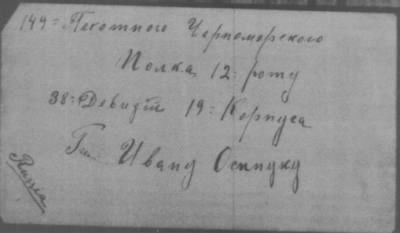 149= Пехотного Черноморского
Полка 12= роту
38= Дивизiи 19= Корпуса
Ивану Осипуку
Russia